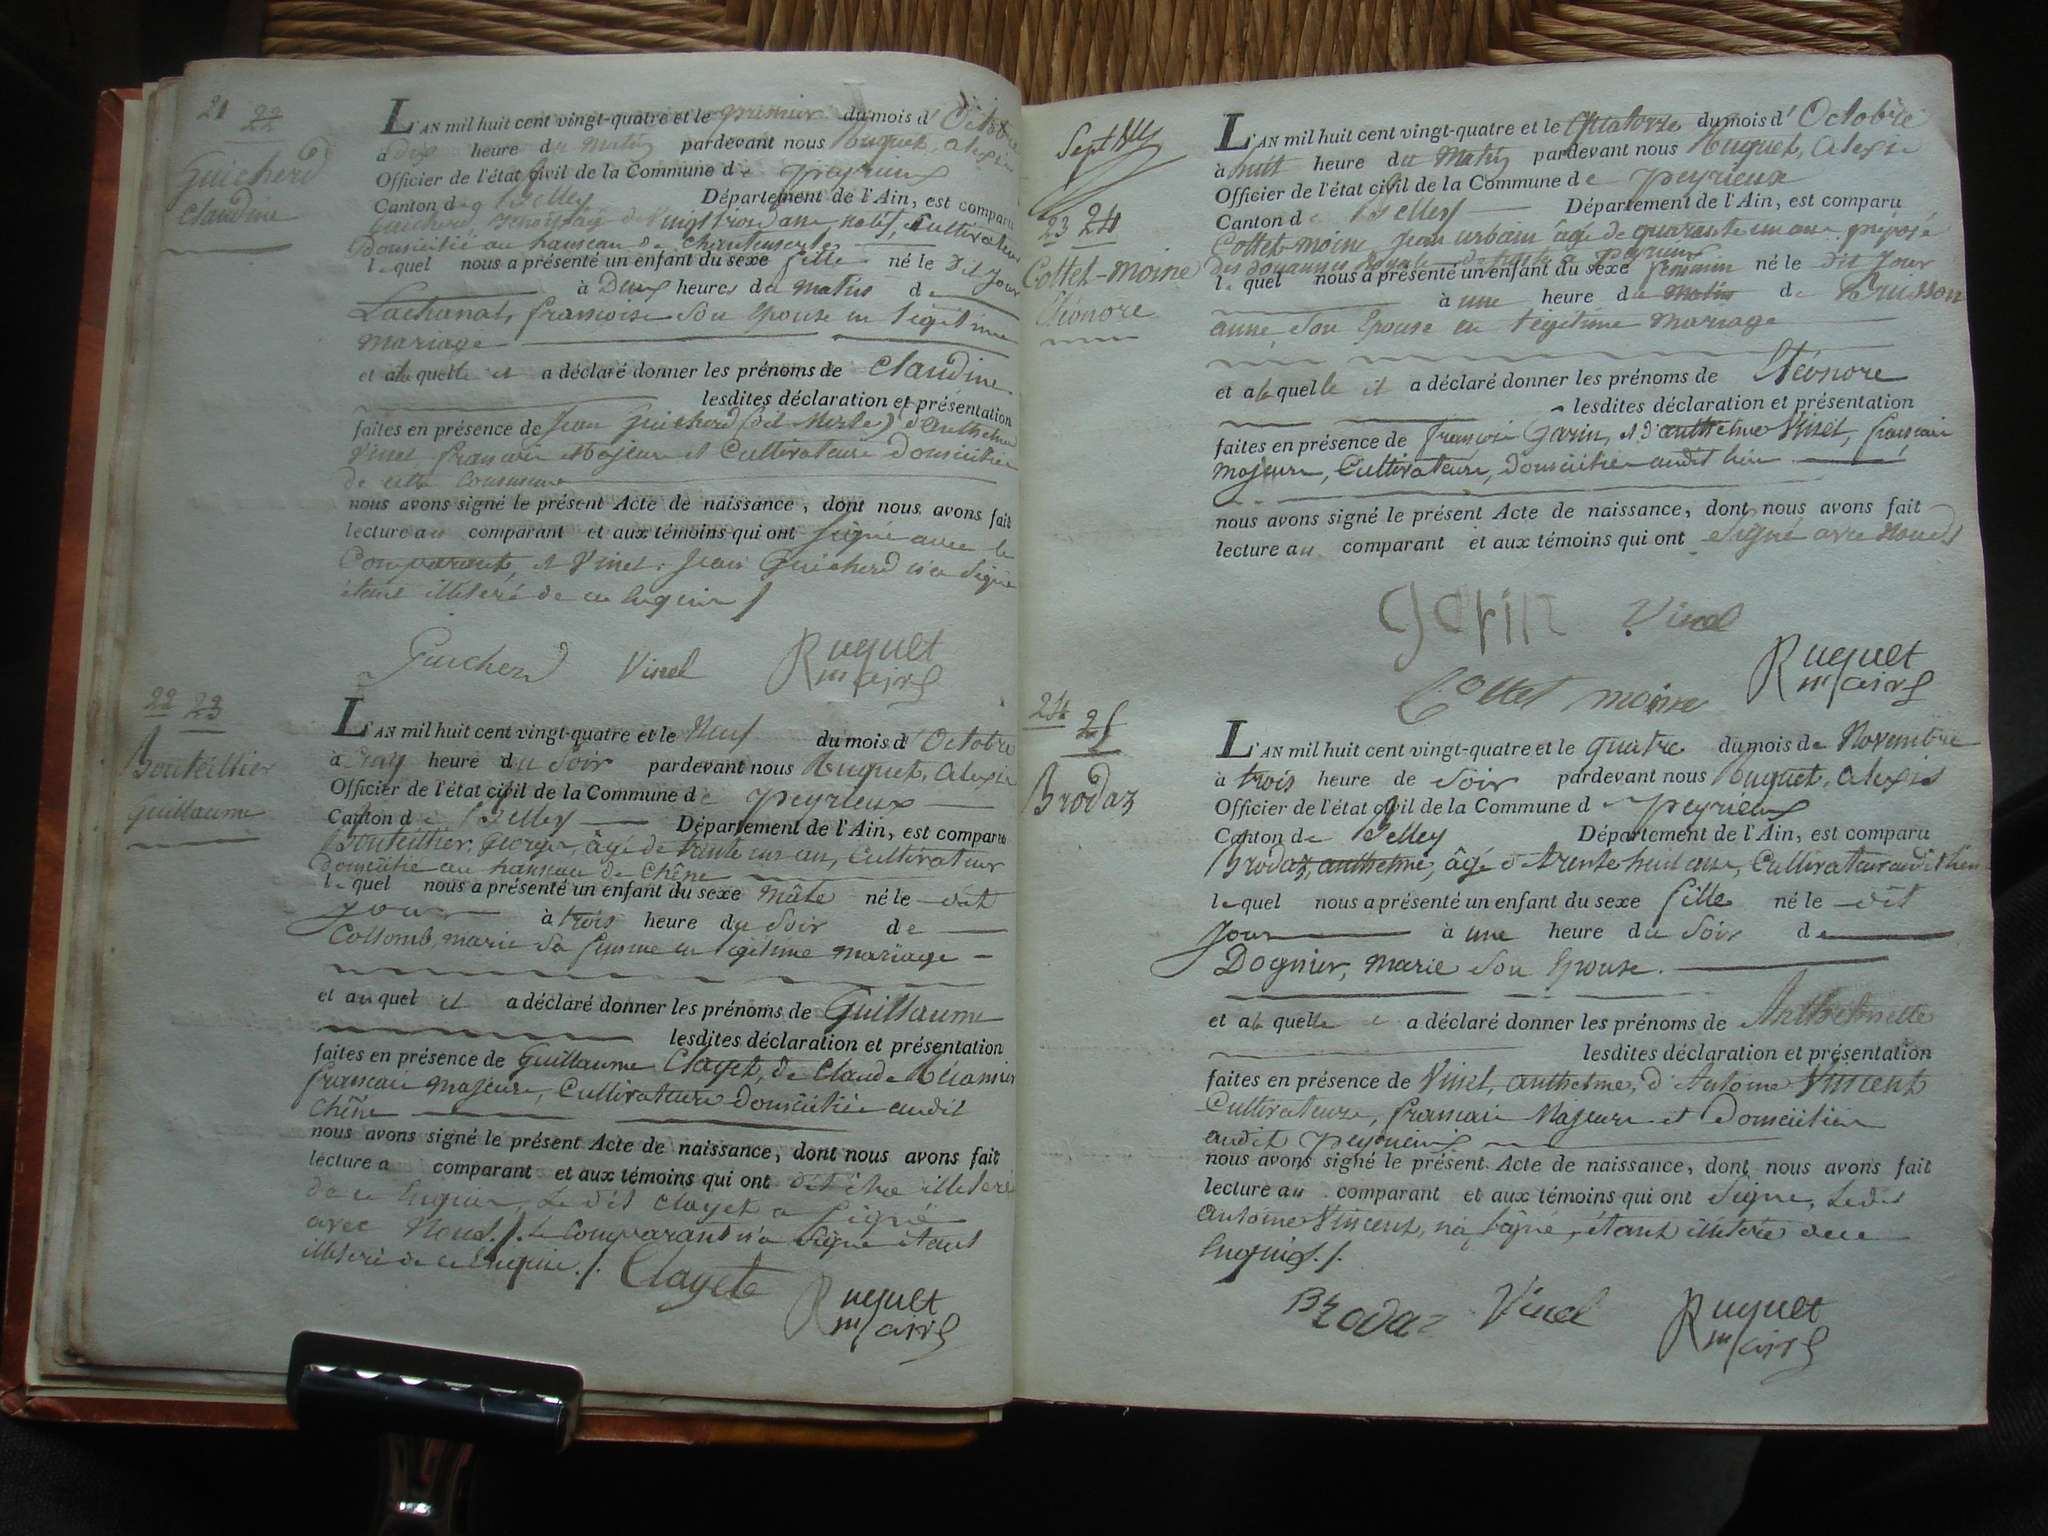 21 22
Guicherd
Claudine
L'AN mil huit cent vingt-quatre et le premier du mois d'Octobre
à dix heure du matin pardevant nous Huguet, alexis
Officier de l'état civil de la Commune de peyrieux
Canton de Belley Département de l'Ain, est comparu
guicherd, de vingt trois ans, natif, Cultivateur
Domicilié au hameau de
lequel nous a présenté un enfant du sexe fille né le Dit Jour
à Deux heures du matin de
Lachanal, francoise Son Epouse en legitime
mariage
et à la quelle il a déclaré donner les prénoms de Claudine
lesdites déclaration et présentation
faites en présence de Jean guicherd (dit Merle) d'anthelme
Vinel francais Majeurs et Cultivateurs Domiciliés
de cette Commune
nous avons signé le présent Acte de naissance, dont nous avons fait
lecture au comparant et aux témoins qui ont signé avec le
Comparant, et Vinel. Jean Guicherd n'a signé
étant illiteré de ce Enquis /
Guicherd Vinel Huguet
maire
22 23
Bouteillier
guillaume
L'AN mil huit cent vingt-quatre et le Neuf du mois d'Octobre
à heure du Soir pardevant nous Huguet, Alexis
Officier de l'état civil de la Commune de peyrieux
Canton de Belley Département de l'Ain, est comparu
Bouteillier, george, âgé de trente un an, Cultivateur
Domicilié au hameau de Chêne
lequel nous a présenté un enfant du sexe mâle né le dit
Jour à trois heure du Soir de
Collomb, marie Sa femme en legitime mariage
et au quel il a déclaré donner les prénoms de Guillaume
lesdites déclaration et présentation
faites en présence de Guillaume Clayet, de Claude
francais majeurs, Cultivateurs Domiciliés audit
Chêne
nous avons signé le présent Acte de naissance, dont nous avons fait
lecture a comparant et aux témoins qui ont dit être illiteré
de ce Enquis, Le dit Clayet a signé
avec Nous ./. Le Comparant n'a signé étant
illiteré de ce Enquis ./. Clayet
Huguet
maire
23 24
Cottet-moine
Eléonore
L'AN mil huit cent vingt-quatre et le Quatorze du mois d'Octobre
à huit heure du Matin pardevant nous Huguet, alexis
Officier de l'état civil de la Commune de peyrieux
Canton de Belley Département de l'Ain, est comparu
Cottet-moine, Jean urbain âgé de quarante un ans préposé
des douannes à peyrieux
lequel nous a présenté un enfant du sexe feminin né le Dit Jour
à une heure du matin de Brusson
anne Son Epouse en legitime mariage
et à la quelle il a déclaré donner les prénoms de Eléonore
lesdites déclaration et présentation
faites en présence de françois Garin, et d'anthelme Vinel, francais
majeurs, Cultivateurs, Domiciliés audit lieu
nous avons signé le présent Acte de naissance, dont nous avons fait
lecture au comparant et aux témoins qui ont signé avec Nous
garin Vinel
Huguet
maire
Cottet moine
24 25
Brodaz
L'AN mil huit cent vingt-quatre et le quatre du mois de Novembre
à trois heure de Soir pardevant nous Huguet, alexis
Officier de l'état civil de la Commune de peyrieux
Canton de Belley Département de l'Ain, est comparu
Brodaz, anthelme, âgé de trente huit ans, Cultivateur audit lieu
lequel nous a présenté un enfant du sexe fille né le dit
Jour à une heure du Soir de
Dognier, marie Son Epouse.
et à la quelle il a déclaré donner les prénoms de Anthelmette
lesdites déclaration et présentation
faites en présence de Vinel, anthelme, d'Antoine Vincent
Cultivateurs, francais Majeurs et Domiciliés
audit peyrieux
nous avons signé le présent Acte de naissance, dont nous avons fait
lecture au comparant et aux témoins qui ont signé, Le dit
Antoine Vincent, n'a signé, étant illiteré de ce
Enquis ./.
Brodaz Vinel Huguet
maire